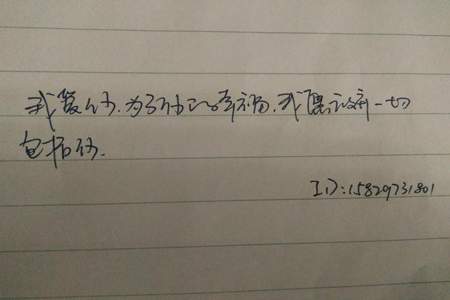 我爱你.为了你的幸福.我愿意放弃一切
包括你.
ID:15829731801